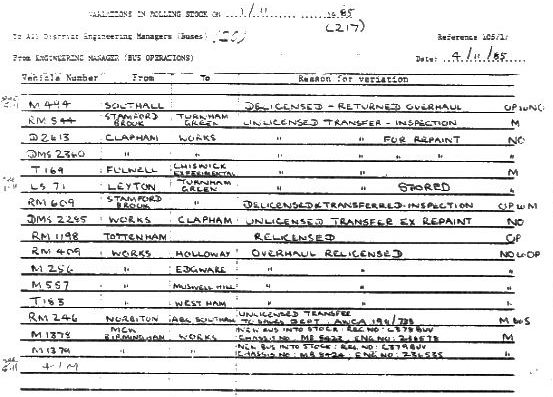 VARIATIONS IN ROLLING STOCK ON 1/11 1985
(217)
To All District Engineering Managers (Buses) (20) Reference 105/1/
From ENGINEERING MANAGER (BUS OPERATIONS) Date: 4/11/85
Vehicle Number From To Reason for variation
M 494 SOUTHALL DELICENSED - RETURNED OVERHAUL
RM 544 STAMFORD BROOK TURNHAM GREEN UNLICENSED TRANSFER - INSPECTION M
D 2613 CLAPHAM WORKS " " FOR REPAINT NO
DMS 2360 " " " " " " "
T 169 FULWELL CHISWICK EXPERIMENTAL " " M
LS 71 LEYTON TURNHAM GREEN " " STORED "
RM 609 STAMFORD BROOK " DELICENSED & TRANSFERRED - INSPECTION OP to M
DMS 2295 WORKS CLAPHAM UNLICENSED TRANSFER EX REPAINT NO
RM 1198 TOTTENHAM RELICENSED OP
RM 409 WORKS HOLLOWAY OVERHAUL RELICENSED NO to OP
M 256 " EDGWARE " " "
M 557 " MUSWELL HILL " " "
T 183 " WEST HAM " " "
RM 246 NORBITON AEC SOUTHALL UNLICENSED TRANSFER TO SALES DEPT. AWCA 190/ M
M 1378 MCW BIRMINGHAM WORKS NEW BUS INTO STOCK: REG NO: C378BUV CHASSIS NO: MB 8423, ENG NO: M
M 1379 " " NEW BUS INTO STOCK: REG NO: C379BUV CHASSIS NO: MB 8424, ENG NO: 236535 "